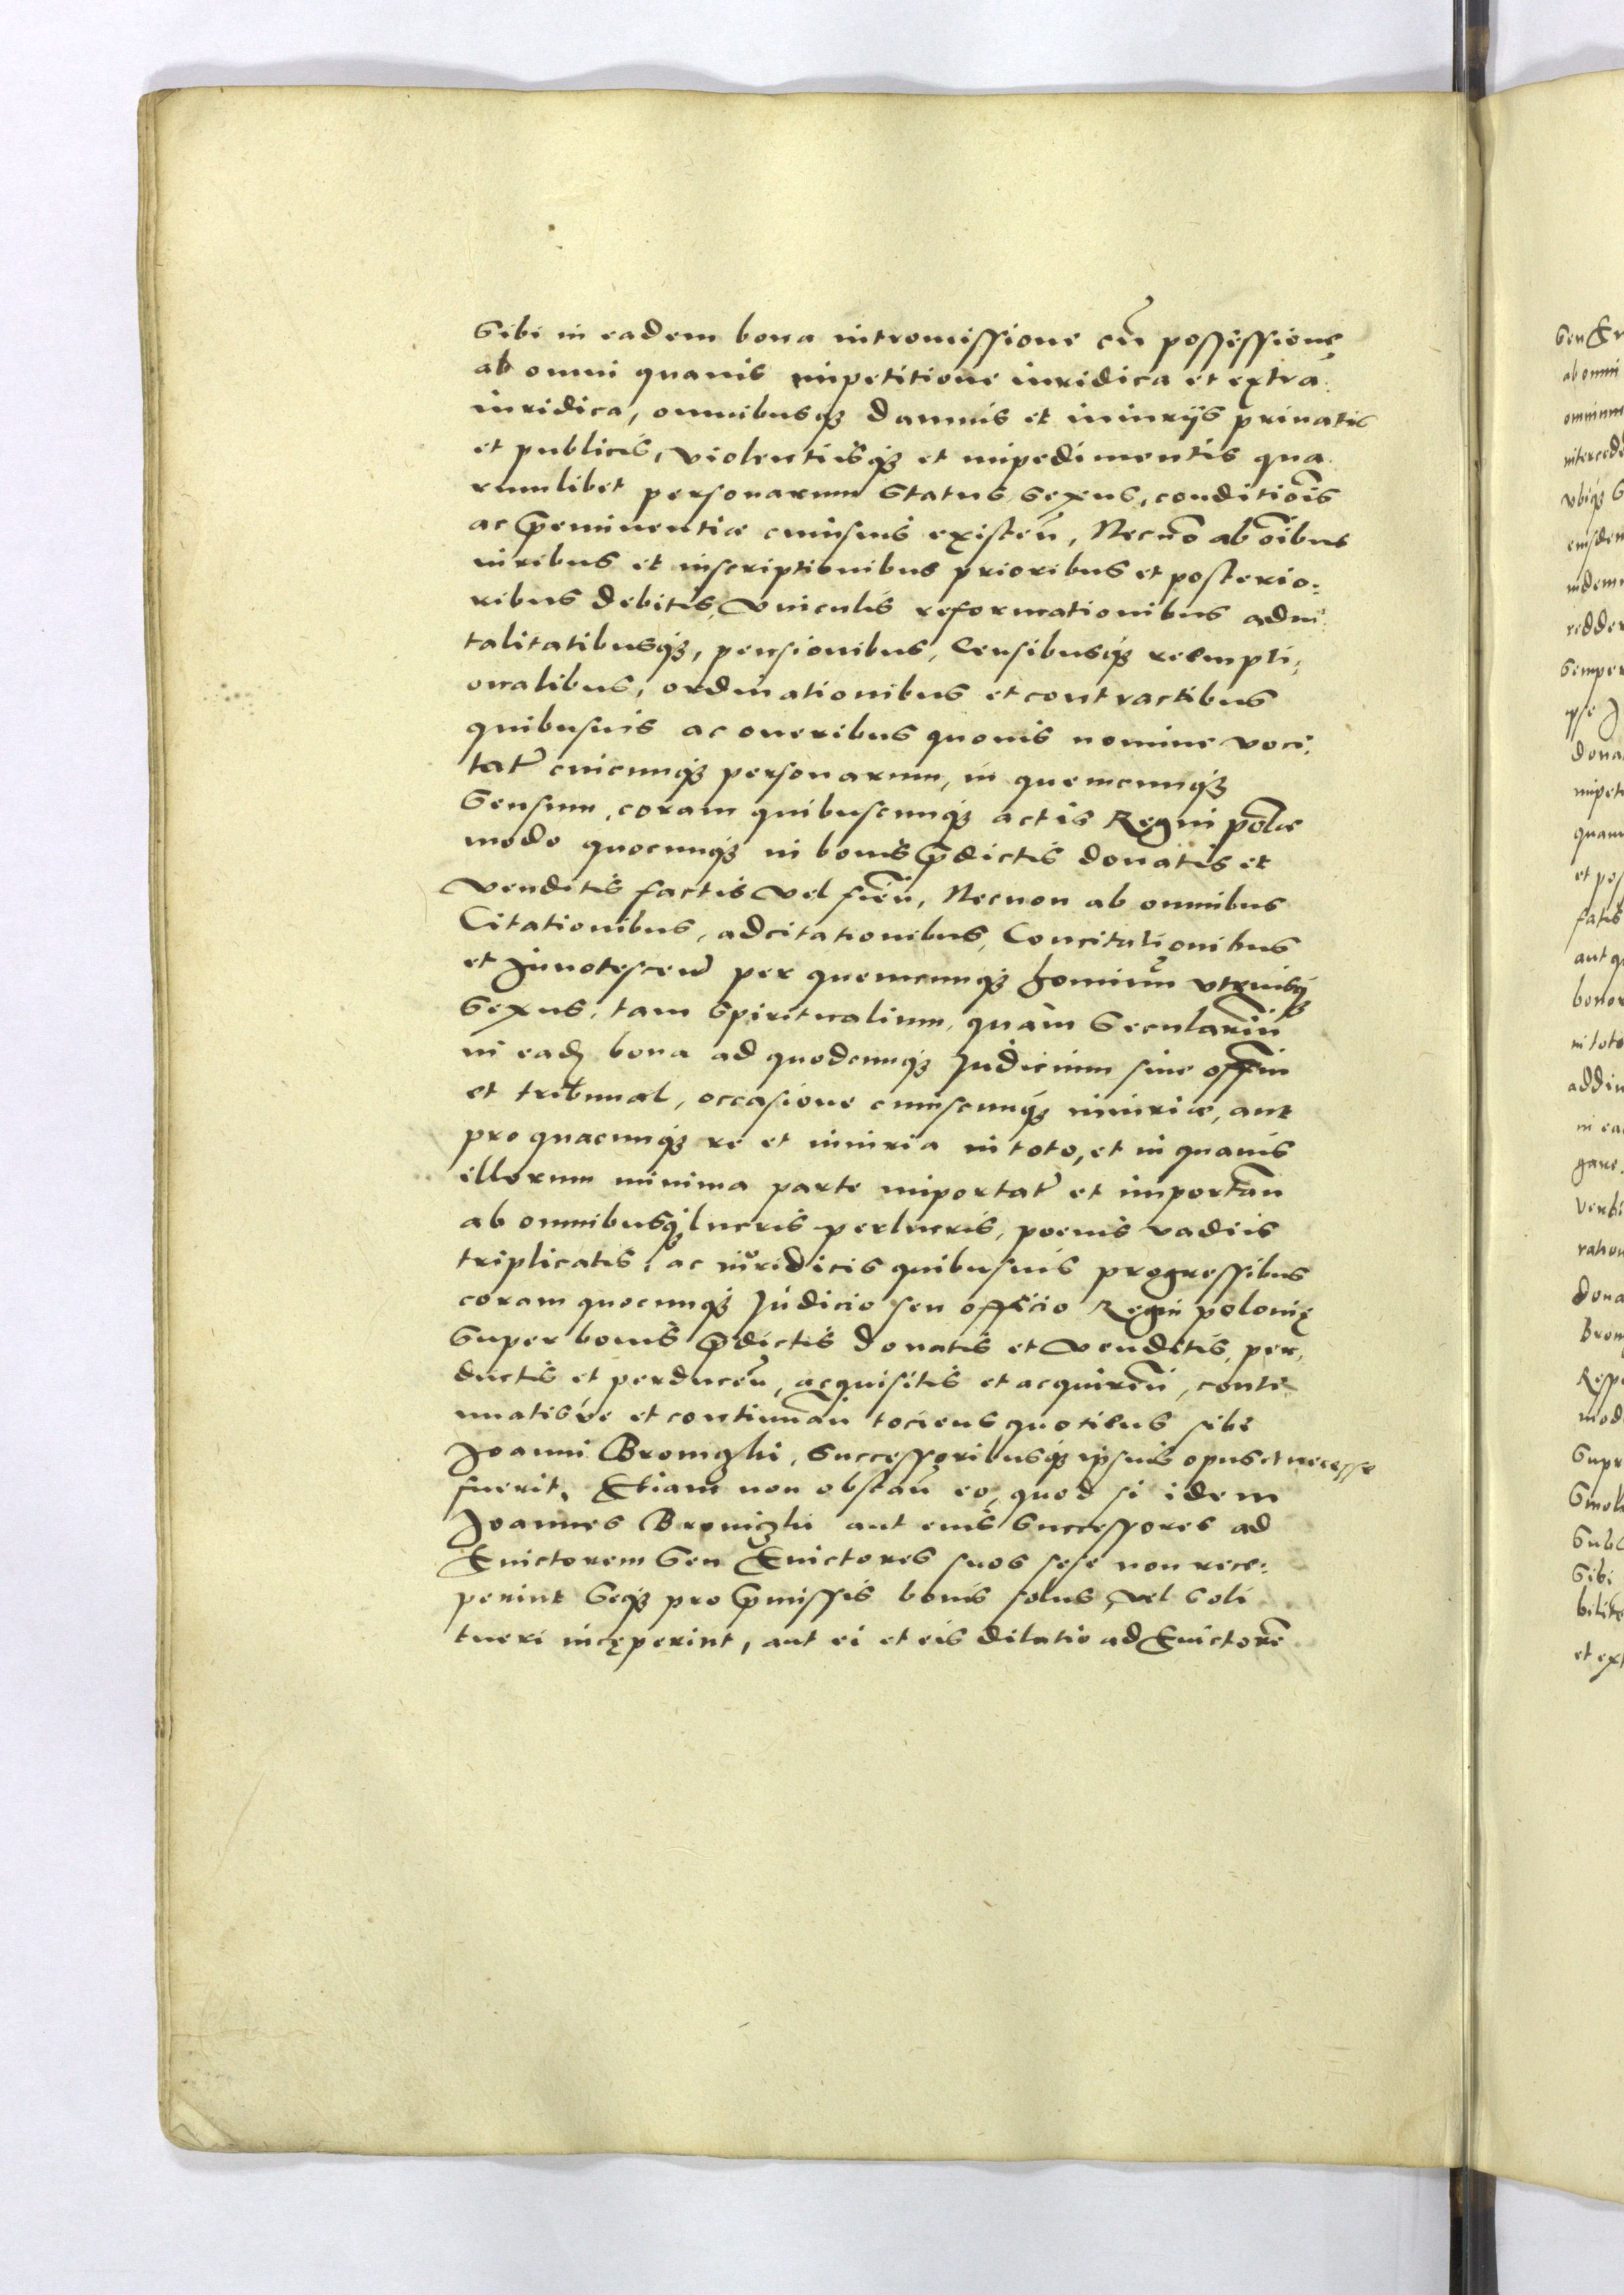 Sibi in eadem bona intromissione cũ possessione
ab omni quauis impetitione iuridica et extra
iuridica, omnibusq; damnis et iniurijs priuatis
et publicis, violentiisq; et impedimentis qua
rumlibet personarum status, sexus, conditiõis
ac p̃eminentiæ cuiusuis existeñ, Necnõ ab õibus
iuribus et inscriptionibus prioribus et posterio:
ribus debitis, viniculis reformationibus advi:
talitatibusq;, pensionibus, Censibusq; reempti:
onalibus, ordinationibus et contractibus
quibusuis ac oneribus quouis nomine voci:
tat̃ cuicunq; personarum, in quemcunq;
Sensum, coram quibuscunq; actis Regni põlæ
modo quocunq; in bonis p̃dictis donatis et
venditis factis vel fieñ, Necnon ab omnibus
Citationibus, adcitationibus, Concitationibus
et Innotesceñ per quemcunq; hominũ vtriusq;
Sexus, tam Spiritualium, quàm Seculariũ
in eadẽ bona ad quodcunq; Judicium siue offm̃
et tribunal, occasione cuiuscunq; iniuriæ, aut
pro quacunq; re et iniuria in toto, et in quauis
illorum minima parte importat̃ et importañ
ab omnibusq; lucris perlucris, poenis vadiis
triplicatis, ac iuridicis quibusuis progressibus
coram quocunq; Judicio seu officio Regni polonię
Super bonis p̃dictis donatis et venditis, per
ductis et perduceñ, acquisitis et acquireñ, conti
nuatisue et continuañ tociens quotiens sibi
Joanni Broniczki, Successoribusq; ipsius opus et necesse
fuerit, Etiam non obstañ eo, quod si idem
Joannes Broniczki aut eius Successores ad
Euictorem Seu Euictores suos sese non rece:
perint Seq; pro p̃missis bonis solus vel Soli
tueri incęperint, aut ei et eis dilatio ad Euictorẽ